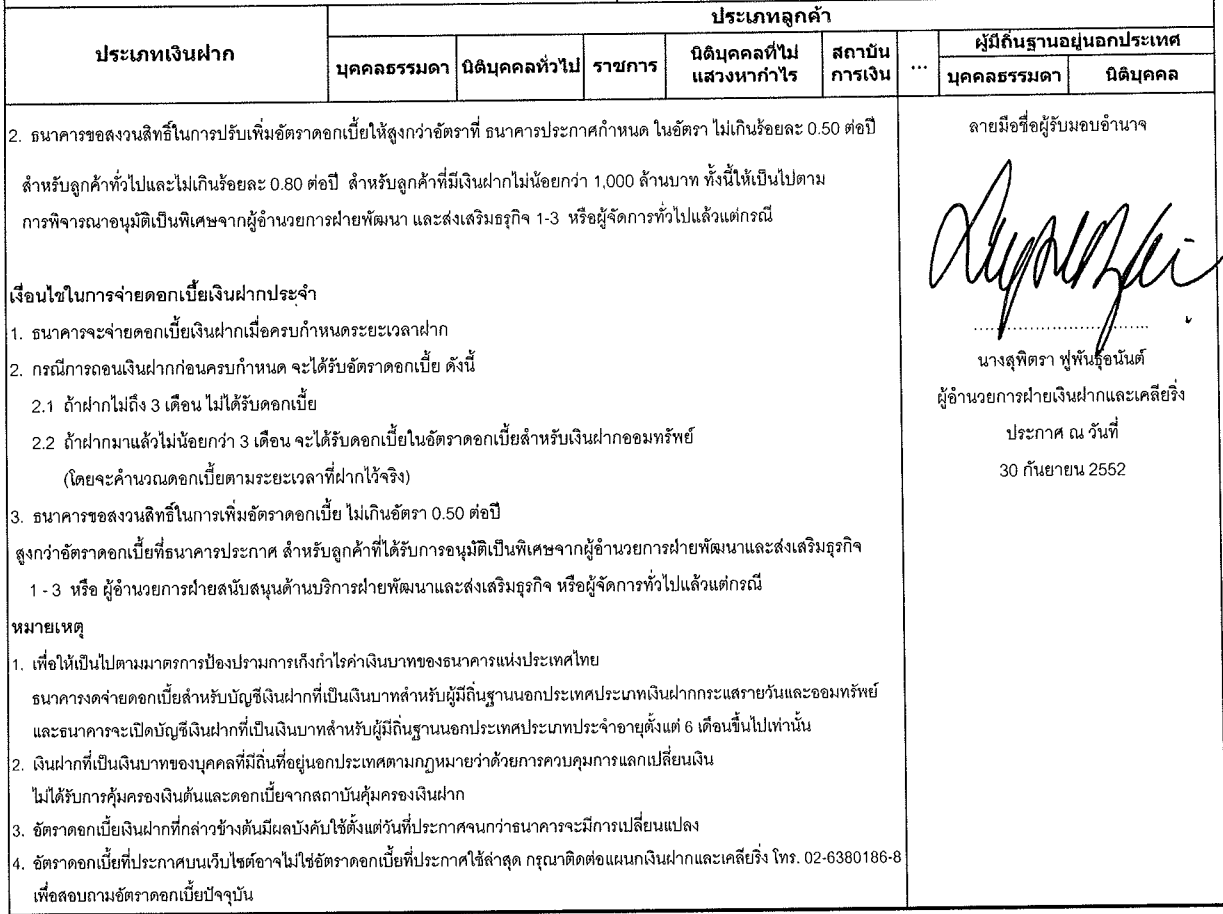 ประเภทลูกค้า
ประเภทเงินฝาก
บุคคลธรรมดา
นิติบุคคลทั่วไป
ราชการ
นิติบุคคลที่ไม่
แสวงหากำไร
สถาบัน
การเงิน
...
ผู้มีถิ่นฐานอยู่นอกประเทศ
บุคคลธรรมดา
นิติบุคคล
2. ธนาคารขอสงวนสิทธิ์ในการปรับเพิ่มอัตราดอกเบี้ยให้สูงกว่าอัตราที่ ธนาคารประกาศกำหนด ในอัตรา ไม่เกินร้อยละ 0.50 ต่อปี
สำหรับลูกค้าทั่วไปและไม่เกินร้อยละ 0.80 ต่อปี สำหรับลูกค้าที่มีเงินฝากไม่น้อยกว่า 1,000 ล้านบาท ทั้งนี้ให้เป็นไปตาม
การพิจารณาอนุมัติเป็นพิเศษจากผู้อำนวยการฝ่ายพัฒนา และส่งเสริมธรุกิจ 1-3 หรือผู้จัดการทั่วไปแล้วแต่กรณี
เงื่อนไขในการจ่ายดอกเบี้ยเงินฝากประจำ
1. ธนาคารจะจ่ายดอกเบี้ยเงินฝากเมื่อครบกำหนดระยะเวลาฝาก
2. กรณีการถอนเงินฝากก่อนครบกำหนด จะได้รับอัตราดอกเบี้ย ดังนี้
2.1 ถ้าฝากไม่ถึง 3 เดือน ไม่ได้รับดอกเบี้ย
2.2 ถ้าฝากมาแล้วไม่น้อยกว่า 3 เดือน จะได้รับดอกเบี้ยในอัตราดอกเบี้ยสำหรับเงินฝากออมทรัพย์
(โดยจะคำนวณดอกเบี้ยตามระยะเวลาที่ฝากไว้จริง)
3. ธนาคารขอสงวนสิทธิ์ในการเพิ่มอัตราดอกเบี้ย ไม่เกินอัตรา 0.50 ต่อปี
สูงกว่าอัตราดอกเบี้ยที่ธนาคารประกาศ สำหรับลูกค้าที่ได้รับการอนุมัติเป็นพิเศษจากผู้อำนวยการฝ่ายพัฒนาและส่งเสริมธุรกิจ
1 - 3 หรือ ผู้อำนวยการฝ่ายสนับสนุนด้านบริการฝ่ายพัฒนาและส่งเสริมธุรกิจ หรือผู้จัดการทั่วไปแล้วแต่กรณี
หมายเหตุ
1. เพื่อให้เป็นไปตามมาตรการป้องปรามการเก็งกำไรค่าเงินบาทของธนาคารแห่งประเทศไทย
ธนาคารงดจ่ายดอกเบี้ยสำหรับบัญชีเงินฝากที่เป็นเงินบาทสำหรับผู้มีถิ่นฐานนอกประเทศประเภทเงินฝากกระแสรายวันและออมทรัพย์
และธนาคารจะเปิดบัญชีเงินฝากที่เป็นเงินบาทสำหรับผู้มีถิ่นฐานนอกประเทศประเภทประจำอายุตั้งแต่ 6 เดือนขึ้นไปเท่านั้น
2. เงินฝากที่เป็นเงินบาทของบุคคลที่มีถิ่นที่อยู่นอกประเทศตามกฎหมายว่าด้วยการควบคุมการแลกเปลี่ยนเงิน
ไม่ได้รับการคุ้มครองเงินต้นและดอกเบี้ยจากสถาบันคุ้มครองเงินฝาก
3. อัตราดอกเบี้ยเงินฝากที่กล่าวข้างต้นมีผลบังคับใช้ตั้งแต่วันที่ประกาศจนกว่าธนาคารจะมีการเปลี่ยนแปลง
4. อัตราดอกเบี้ยที่ประกาศบนเว็บไซต์อาจไม่ใช่อัตราดอกเบี้ยที่ประกาศใช้ล่าสุด กรุณาติดต่อแผนกเงินฝากและเคลียริ่ง โทร. 02-6380186-8
เพื่อสอบถามอัตราดอกเบี้ยปัจจุบัน
ลายมือชื่อผู้รับมอบอำนาจ
นางสุพิตรา ฟูพันธุ์อนันต์
ผู้อำนวยการฝ่ายเงินฝากและเคลียริ่ง
ประกาศ ณ วันที่
30 กันยายน 2552